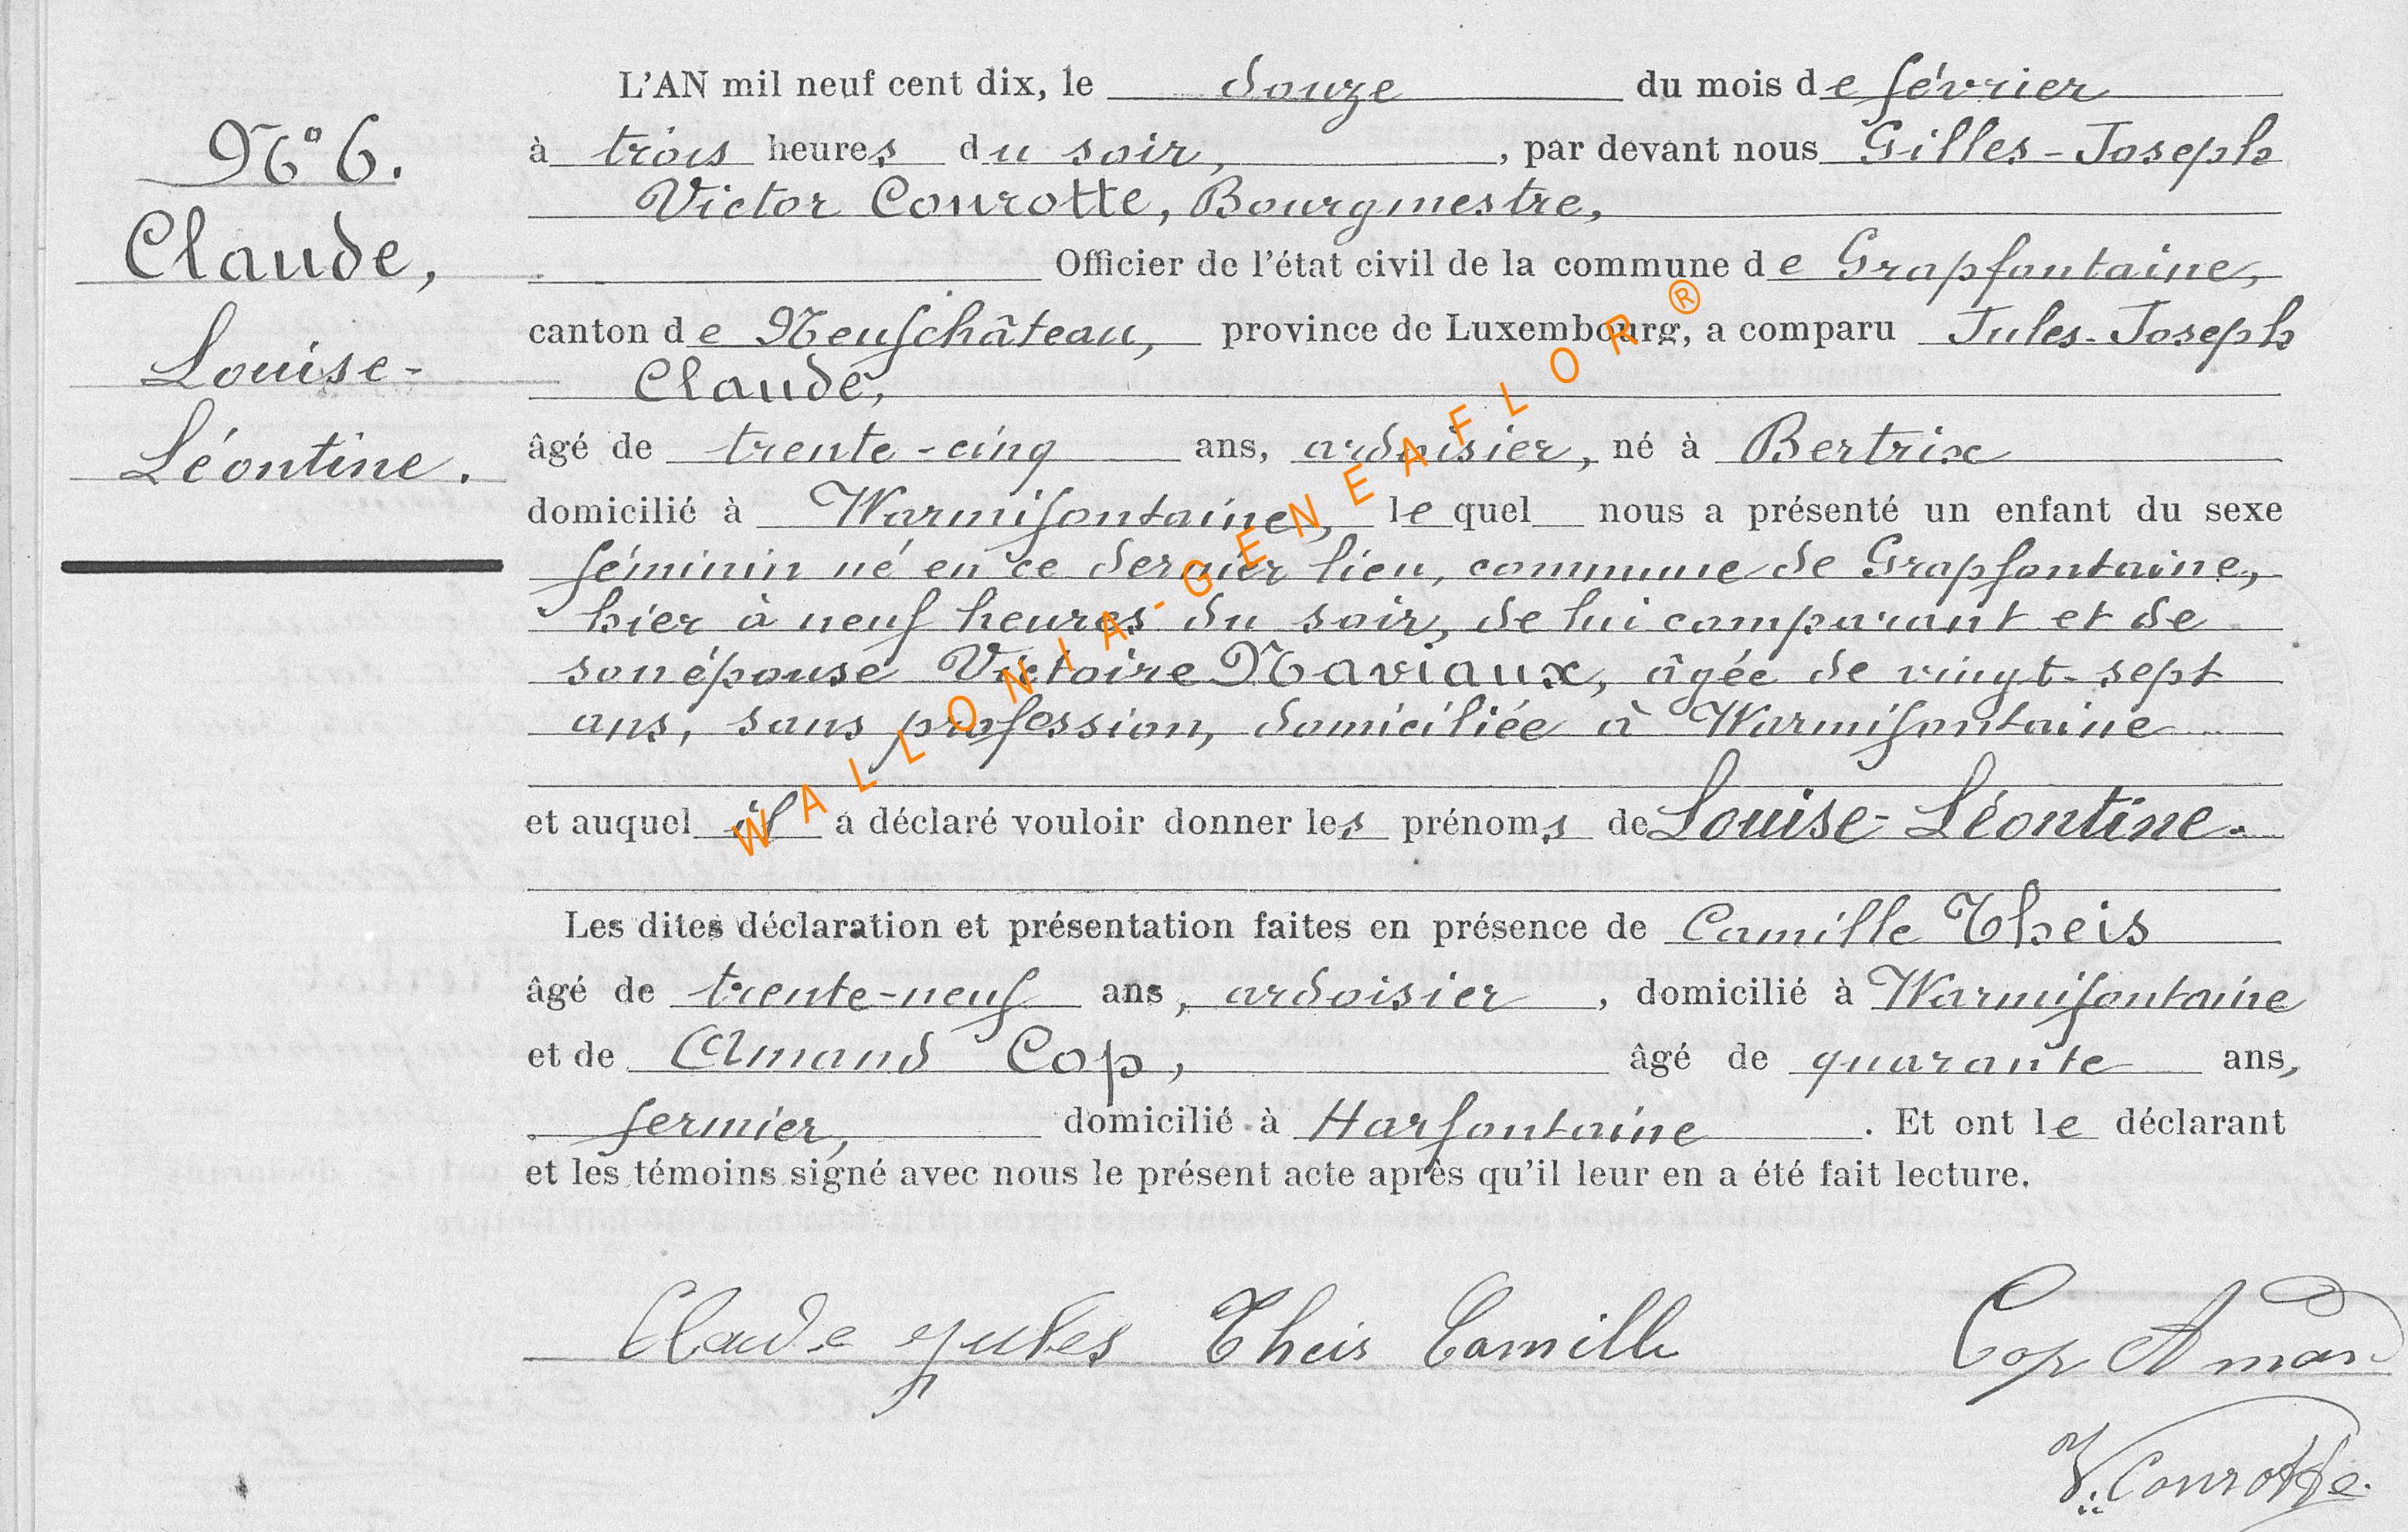 N° 6.
Claude,
Louise-
Léontine.
L'AN mil neuf cent dix, le douze du mois de février
à trois heures du soir, , par devant nous Gilles-Joseph
Victor Conrotte, Bourgmestre,
Officier de l'état civil de la commune de Grapfontaine,
canton de Neufchâteau, province de Luxembourg, a comparu Jules-Joseph
Claude,
âgé de trente-cinq ans, ardoisier, né à Bertrix
domicilié à Warmifontaine, le quel nous a présenté un enfant du sexe
féminin né en ce dernier lieu, commune de Grapfontaine,
hier à neuf heures du soir, de lui comparant et de
son épouse Victoire Naviaux, âgée de vingt-sept
ans, sans profession, domiciliée à Warmifontaine
et auquel il a déclaré vouloir donner les prénoms de Louise-Léontine.
Les dites déclaration et présentation faites en présence de Camille Theis
âgé de trente-neuf ans, ardoisier, domicilié à Warmifontaine
et de Amand Cop, âgé de quarante ans,
fermier, domicilié à Harfontaine. Et ont le déclarant
et les témoins signé avec nous le présent acte après qu'il leur en a été fait lecture.
Claude Jules Theis Camille Cop Amand
V. Conrotte.
WALLONIA-GENEAFLOR®